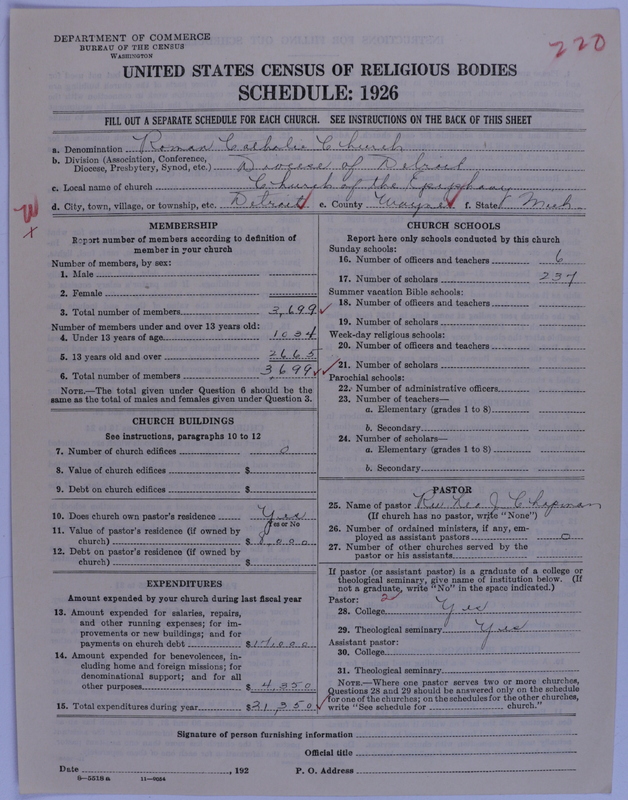 DEPARTMENT OF COMMERCE
BUREAU OF THE CENSUS
WASHINGTON
220
UNITED STATES CENSUS OF RELIGIOUS BODIES
SCHEDULE: 1926
FILL OUT A SEPARATE SCHEDULE FOR EACH CHURCH. SEE INSTRUCTIONS ON THE BACK OF THIS SHEET
a. Denomination Roman Catholic Church
b. Division (Association, Conference, Diocese, Presbytery, Synod, etc.) Diocese of Detroit
c. Local name of church Church of the Epiphany
d. City, town, village, or township, etc. Detroit e. County Wayne f. State Mich
W
x
MEMBERSHIP
Report number of members according to definition of
member in your church
Number of members, by sex:
1. Male
2. Female
3. Total number of members 3,699
Number of members under and over 13 years old:
4. Under 13 years of age 1034
5. 13 years old and over 2665
6. Total number of members 3699
NOTE.—The total given under Question 6 should be the
same as the total of males and females given under Question 3.
CHURCH BUILDINGS
See instructions, paragraphs 10 to 12
7. Number of church edifices 0
8. Value of church edifices $
9. Debt on church edifices $
10. Does church own pastor's residence Yes
Yes or No
11. Value of pastor's residence (if owned by
church) $ ,000
12. Debt on pastor's residence (if owned by
church) $
EXPENDITURES
Amount expended by your church during last fiscal year
13. Amount expended for salaries, repairs,
and other running expenses; for im-
provements or new buildings; and for
payments on church debt $17,000
14. Amount expended for benevolences, in-
cluding home and foreign missions; for
denominational support; and for all
other purposes $ 4,350
15. Total expenditures during year $21,350
CHURCH SCHOOLS
Report here only schools conducted by this church
Sunday schools:
16. Number of officers and teachers 6
17. Number of scholars 237
Summer vacation Bible schools:
18. Number of officers and teachers
19. Number of scholars
Week-day religious schools:
20. Number of officers and teachers
21. Number of scholars
Parochial schools:
22. Number of administrative officers
23. Number of teachers—
a. Elementary (grades 1 to 8)
b. Secondary
24. Number of scholars—
a. Elementary (grades 1 to 8)
b. Secondary
PASTOR
25. Name of pastor Rev. Leo J. Chapman
(If church has no pastor, write "None")
26. Number of ordained ministers, if any, em-
ployed as assistant pastors 0
27. Number of other churches served by the
pastor or his assistants
If pastor (or assistant pastor) is a graduate of a college or
theological seminary, give name of institution below. (If
not a graduate, write "No" in the space indicated.)
Pastor: 2
28. College Yes
29. Theological seminary Yes
Assistant pastor:
30. College
31. Theological seminary
NOTE.—Where one pastor serves two or more churches,
Questions 28 and 29 should be answered only on the schedule
for one of the churches; on the schedules for the other churches,
write "See schedule for church."
Signature of person furnishing information
Official title
Date , 192 P. O. Address
8—5518a 11—9054